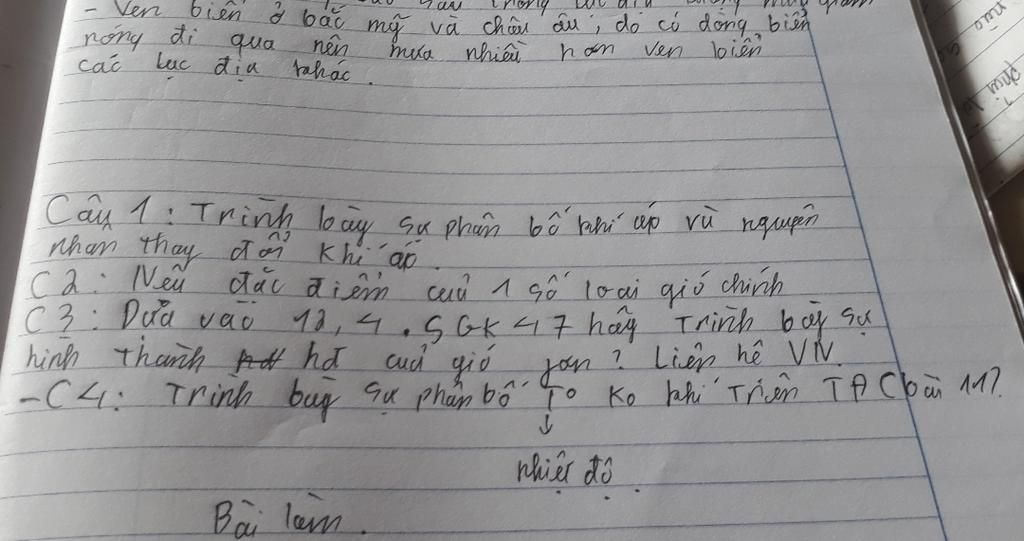 - Ven biển ở bắc mỹ và châu âu, do có dòng biển
nóng đi qua nên mưa nhiều hơn ven biển
các lục địa khác.
Câu 1: Trình bày sự phân bố khí áp và nguyên
nhân thay đổi khí áp.
C2: Nêu đặc điểm của 1 số loại gió chính
C3: Dựa vào 12,4. SGK 47 hãy trình bày sự
hình thành hđ của gió fơn? Liên hệ VN.
-C4: Trình bày sự phân bố To Ko khí trên TĐ (bài 11?
↓
nhiệt độ.
Bài làm.